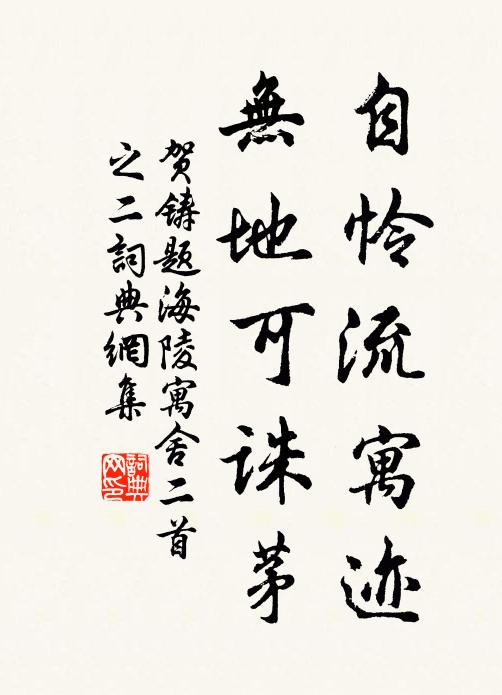 自怜流寓迹
無地可誅茅
贺铸题海陵寓舍二首
之二詞典網集
詞典网印